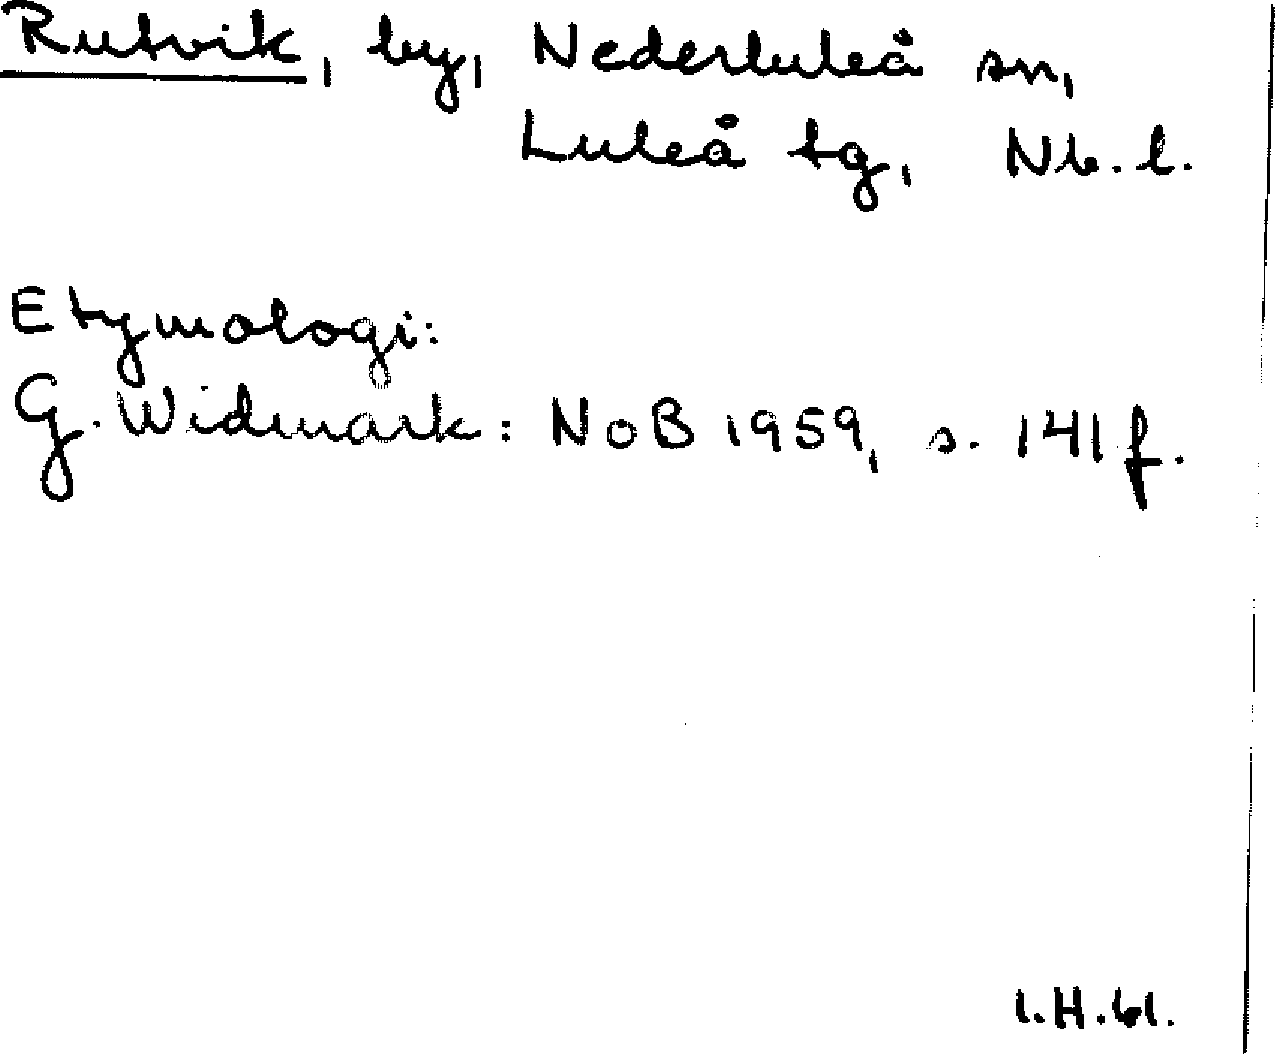 Rutvik, by, Nederluleå sn,
Luleå tg, Nb. l.
Etymologi:
G. Widmark: NoB 1959, s. 141 f.
I.H.61.